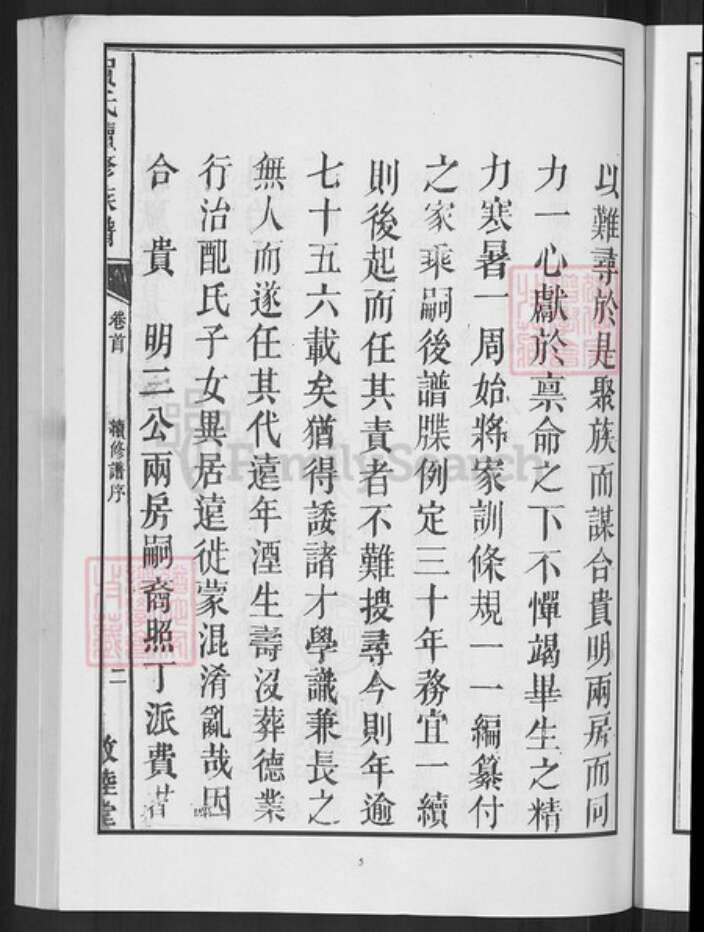 以難尋於是聚族而謀合貴明兩房而同
力一心獻於禀命之下不憚竭畢生之精
力寒暑一周始將家訓條規一一編纂付
之家乘嗣後譜牒例定三十年務宜一續
則後起而任其責者不難搜尋今則年逾
七十五六載矣猶得諉諸才學識兼長之
無人而遂任其代遠年湮生壽沒葬德業
行治配氏子女異居遠徙蒙混淆亂哉因
合 貴 明二公兩房嗣裔照丁派費
氏續修族譜
卷首
續修譜序
二
敦睦堂
5
FamilySearch